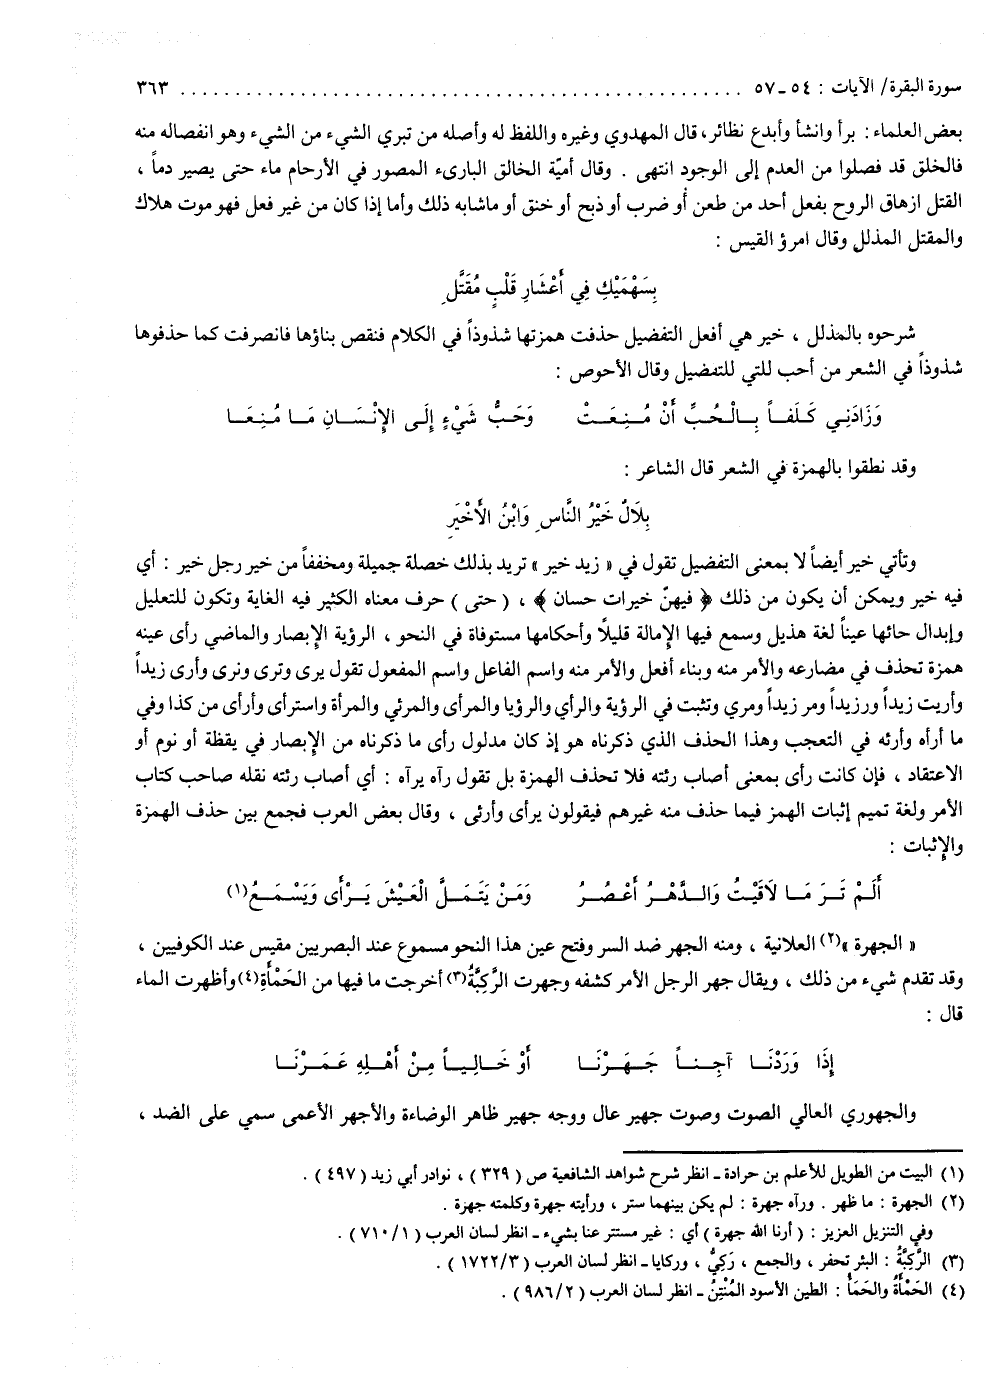 سورة البقرة/ الآيات : ٥٤ـ٥٧ ................................................ ٣٦٣
بعض العلماء : برأ وانشأ وأبدع نظائر، قال المهدوي وغيره واللفظ له وأصله من تبري الشيء من الشيء وهو انفصاله منه
فالخلق قد فصلوا من العدم إلى الوجود انتهى . وقال أميّة الخالق البارىء المصور في الأرحام ماء حتى يصير دماً ،
القتل ازهاق الروح بفعل أحد من طعن أو ضرب أو ذبح أو خنق أو ماشابه ذلك وأما إذا كان من غير فعل فهو موت هلاك
والمقتل المذلل وقال امرؤ القيس :
بِسَهْمَيْكِ فِي أَعْشَارِ قَلْبٍ مُقَتَّلِ
شرحوه بالمذلل ، خير هي أفعل التفضيل حذفت همزتها شذوذاً في الكلام فنقص بناؤها فانصرفت كما حذفوها
شذوذاً في الشعر من أحب للتي للتفضيل وقال الأحوص :
وَزَادَنِي كَلَفاً بِالْحُبِّ أَنْ مُنِعَتْ وَحَبُّ شَيْءٍ إِلَى الإِنْسَانِ مَا مُنِعَا
وقد نطقوا بالهمزة في الشعر قال الشاعر :
بِلَالٌ خَيْرُ النَّاسِ وَابْنُ الأَخْيَرِ
وتأتي خير أيضاً لا بمعنى التفضيل تقول في « زيد خير » تريد بذلك خصلة جميلة ومخففاً من خير رجل خير : أي
فيه خير ويمكن أن يكون من ذلك ﴿ فيهنّ خيرات حسان ﴾ ، ( حتى ) حرف معناه الكثير فيه الغاية وتكون للتعليل
وإبدال حائها عيناً لغة هذيل وسمع فيها الإمالة قليلًا وأحكامها مستوفاة في النحو ، الرؤية الإبصار والماضي رأى عينه
همزة تحذف في مضارعه والأمر منه وبناء أفعل والأمر منه واسم الفاعل واسم المفعول تقول يرى وترى ونرى وأرى زيداً
وأريت زيداً ورزيداً ومر زيداً ومري وتثبت في الرؤية والرأي والرؤيا والمرأى والمرئي والمرأة واسترأى وأرأى من كذا وفي
ما أرأه وأرئه في التعجب وهذا الحذف الذي ذكرناه هو إذ كان مدلول رأى ما ذكرناه من الإبصار في يقظة أو نوم أو
الاعتقاد ، فإن كانت رأى بمعنى أصاب رئته فلا تحذف الهمزة بل تقول رآه يرآه : أي أصاب رئته نقله صاحب كتاب
الأمر ولغة تميم إثبات الهمز فيما حذف منه غيرهم فيقولون يرأى وأرئى ، وقال بعض العرب فجمع بين حذف الهمزة
والإثبات :
أَلَمْ تَرَ مَا لَاقَيْتُ وَالدَّهْرُ أَعْصُرُ وَمَنْ يَتَمَلَّ الْعَيْشَ يَرْأَى وَيَسْمَعُ(١)
« الجهرة »(٢) العلانية ، ومنه الجهر ضد السر وفتح عين هذا النحو مسموع عند البصريين مقيس عند الكوفيين ،
وقد تقدم شيء من ذلك ، ويقال جهر الرجل الأمر كشفه وجهرت الرَّكِيَّةُ(٣) أخرجت ما فيها من الحَمْأَةِ(٤) وأظهرت الماء
قال :
إِذَا وَرَدْنَا آجِناً جَهَرْنَا أَوْ خَالِياً مِنْ أَهْلِهِ عَمَرْنَا
والجهوري العالي الصوت وصوت جهير عال ووجه جهير ظاهر الوضاءة والأجهر الأعمى سمي على الضد ،
(١) البيت من الطويل للأعلم بن حرادة ـ انظر شرح شواهد الشافعية ص ( ٣٢٩ ) ، نوادر أبي زيد ( ٤٩٧ ) .
(٢) الجهرة : ما ظهر . ورآه جهرة : لم يكن بينهما ستر ، ورأيته جهرة وكلمته جهزة .
وفي التنزيل العزيز : ( أرنا الله جهرة ) أي : غير مستتر عنا بشيء ـ انظر لسان العرب ( ٧١٠/١ ) .
(٣) الرَّكِيَّةُ : البئر تحفر ، والجمع ، رَكِيٌّ ، وركايا ـ انظر لسان العرب ( ١٧٢٢/٣ ) .
(٤) الحَمْأَةُ والحَمَأُ : الطين الأسود المُنْتِنُ ـ انظر لسان العرب ( ٩٨٦/٢ ) .